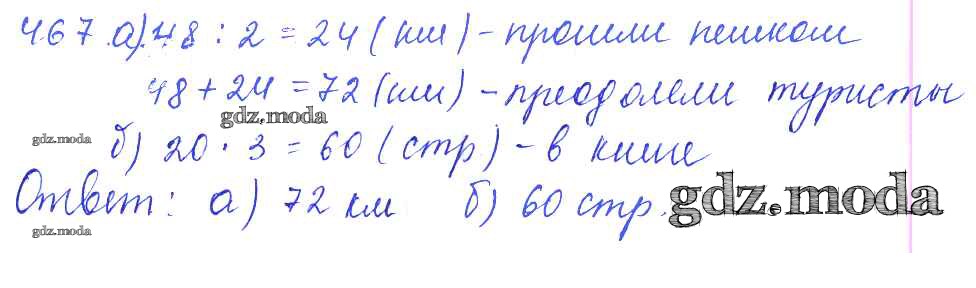 467. а) 48 : 2 = 24 (км) - прошли пешком
48 + 24 = 72 (км) - преодолели туристы
gdz.moda
gdz.moda
б) 20 · 3 = 60 (стр) - в книге
Ответ: а) 72 км б) 60 стр.
gdz.moda
gdz.moda